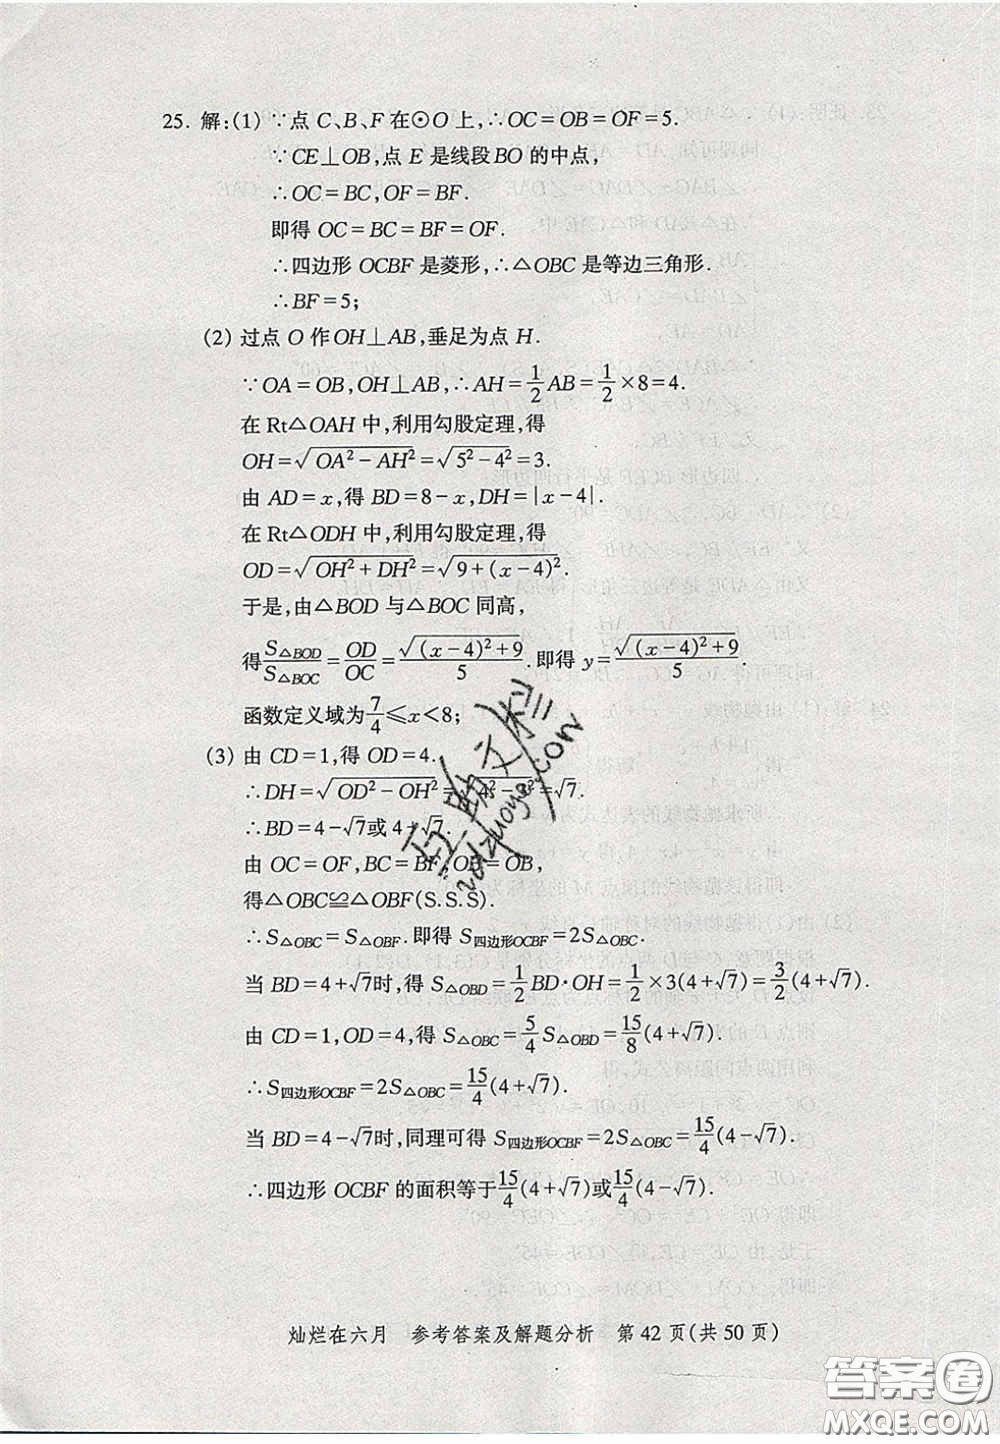 25. 解:(1) ∵点 C、B、F 在⊙O 上,∴OC=OB=OF=5.
∵CE⊥OB,点 E 是线段BO 的中点,
∴OC=BC,OF=BF.
即得 OC=BC=BF=OF.
∴四边形 OCBF 是菱形,∴△OBC 是等边三角形.
∴BF=5;
(2) 过点 O 作OH⊥AB,垂足为点 H.
∵OA=OB,OH⊥AB,∴AH=1/2AB=1/2×8=4.
在 Rt△OAH 中,利用勾股定理,得
OH=√(OA²-AH²)=√(5²-4²)=3.
由 AD=x,得 BD=8-x,DH=|x-4|.
在 Rt△ODH 中,利用勾股定理,得
OD=√(OH²+DH²)=√(9+(x-4)²).
于是,由△BOD 与△BOC 同高,
得S△BOD/S△BOC=OD/OC=√((x-4)²+9)/5.即得 y=√((x-4)²+9)/5.
函数定义域为7/4≤x<8;
(3) 由 CD=1,得 OD=4.
∴DH=√(OD²-OH²)=√(4²-3²)=√7.
∴BD=4-√7或 4+√7.
由 OC=OF,BC=BF,OB=OB,
得△OBC≌△OBF(S.S.S).
∴S△OBC=S△OBF.即得 S四边形OCBF=2S△OBC.
当 BD=4+√7时,得 S△OBD=1/2BD·OH=1/2×3(4+√7)=3/2(4+√7).
由 CD=1,OD=4,得 S△OBC=5/4S△OBD=15/8(4+√7).
∴S四边形OCBF=2S△OBC=15/4(4+√7).
当 BD=4-√7时,同理可得 S四边形OCBF=2S△OBC=15/4(4-√7).
∴四边形 OCBF 的面积等于15/4(4+√7)或15/4(4-√7).
灿烂在六月 参考答案及解题分析 第 42 页(共 50 页)
答案圈
MXQE.COM